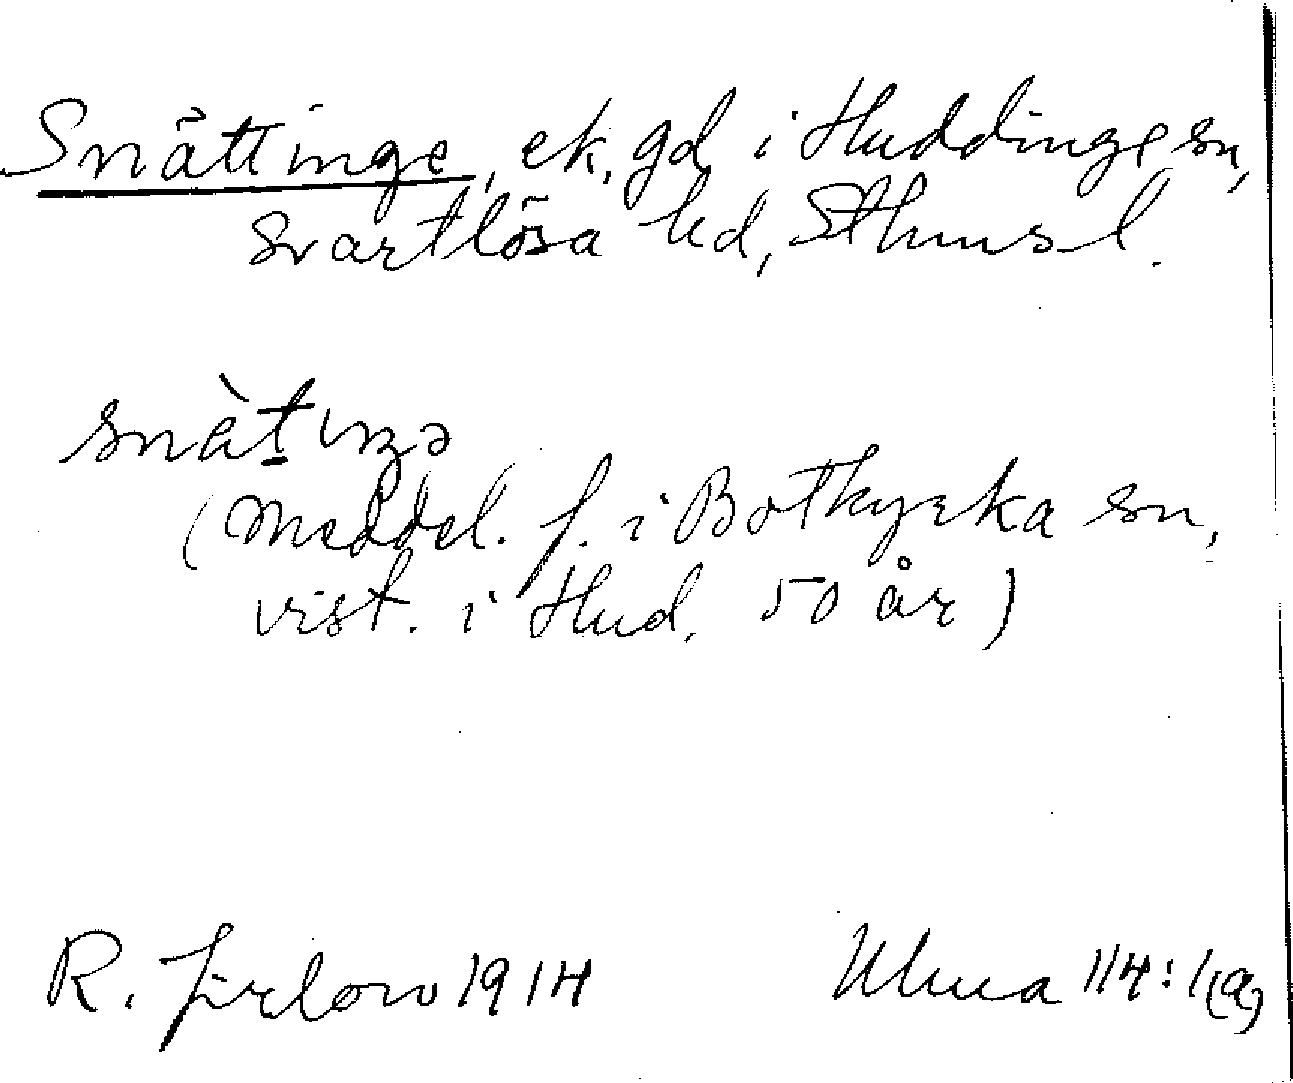 Snättinge, ek. gd i Huddinge sn,
Svartlösa hd, Sthms l.
snä̀t̲ıŋə
(Meddel. f. i Botkyrka sn,
vist. i Hud. 50 år)
R. Jirlow 1914
Uluua 114:1(a)